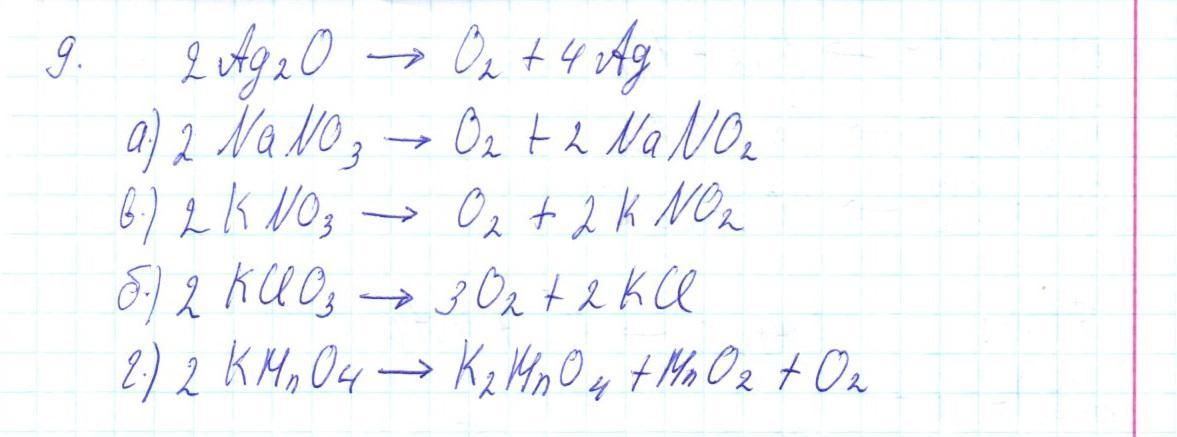 9. 2Ag₂O → O₂ + 4Ag
а.) 2NaNO₃ → O₂ + 2NaNO₂
в.) 2KNO₃ → O₂ + 2KNO₂
б.) 2KClO₃ → 3O₂ + 2KCl
г.) 2KMnO₄ → K₂MnO₄ + MnO₂ + O₂